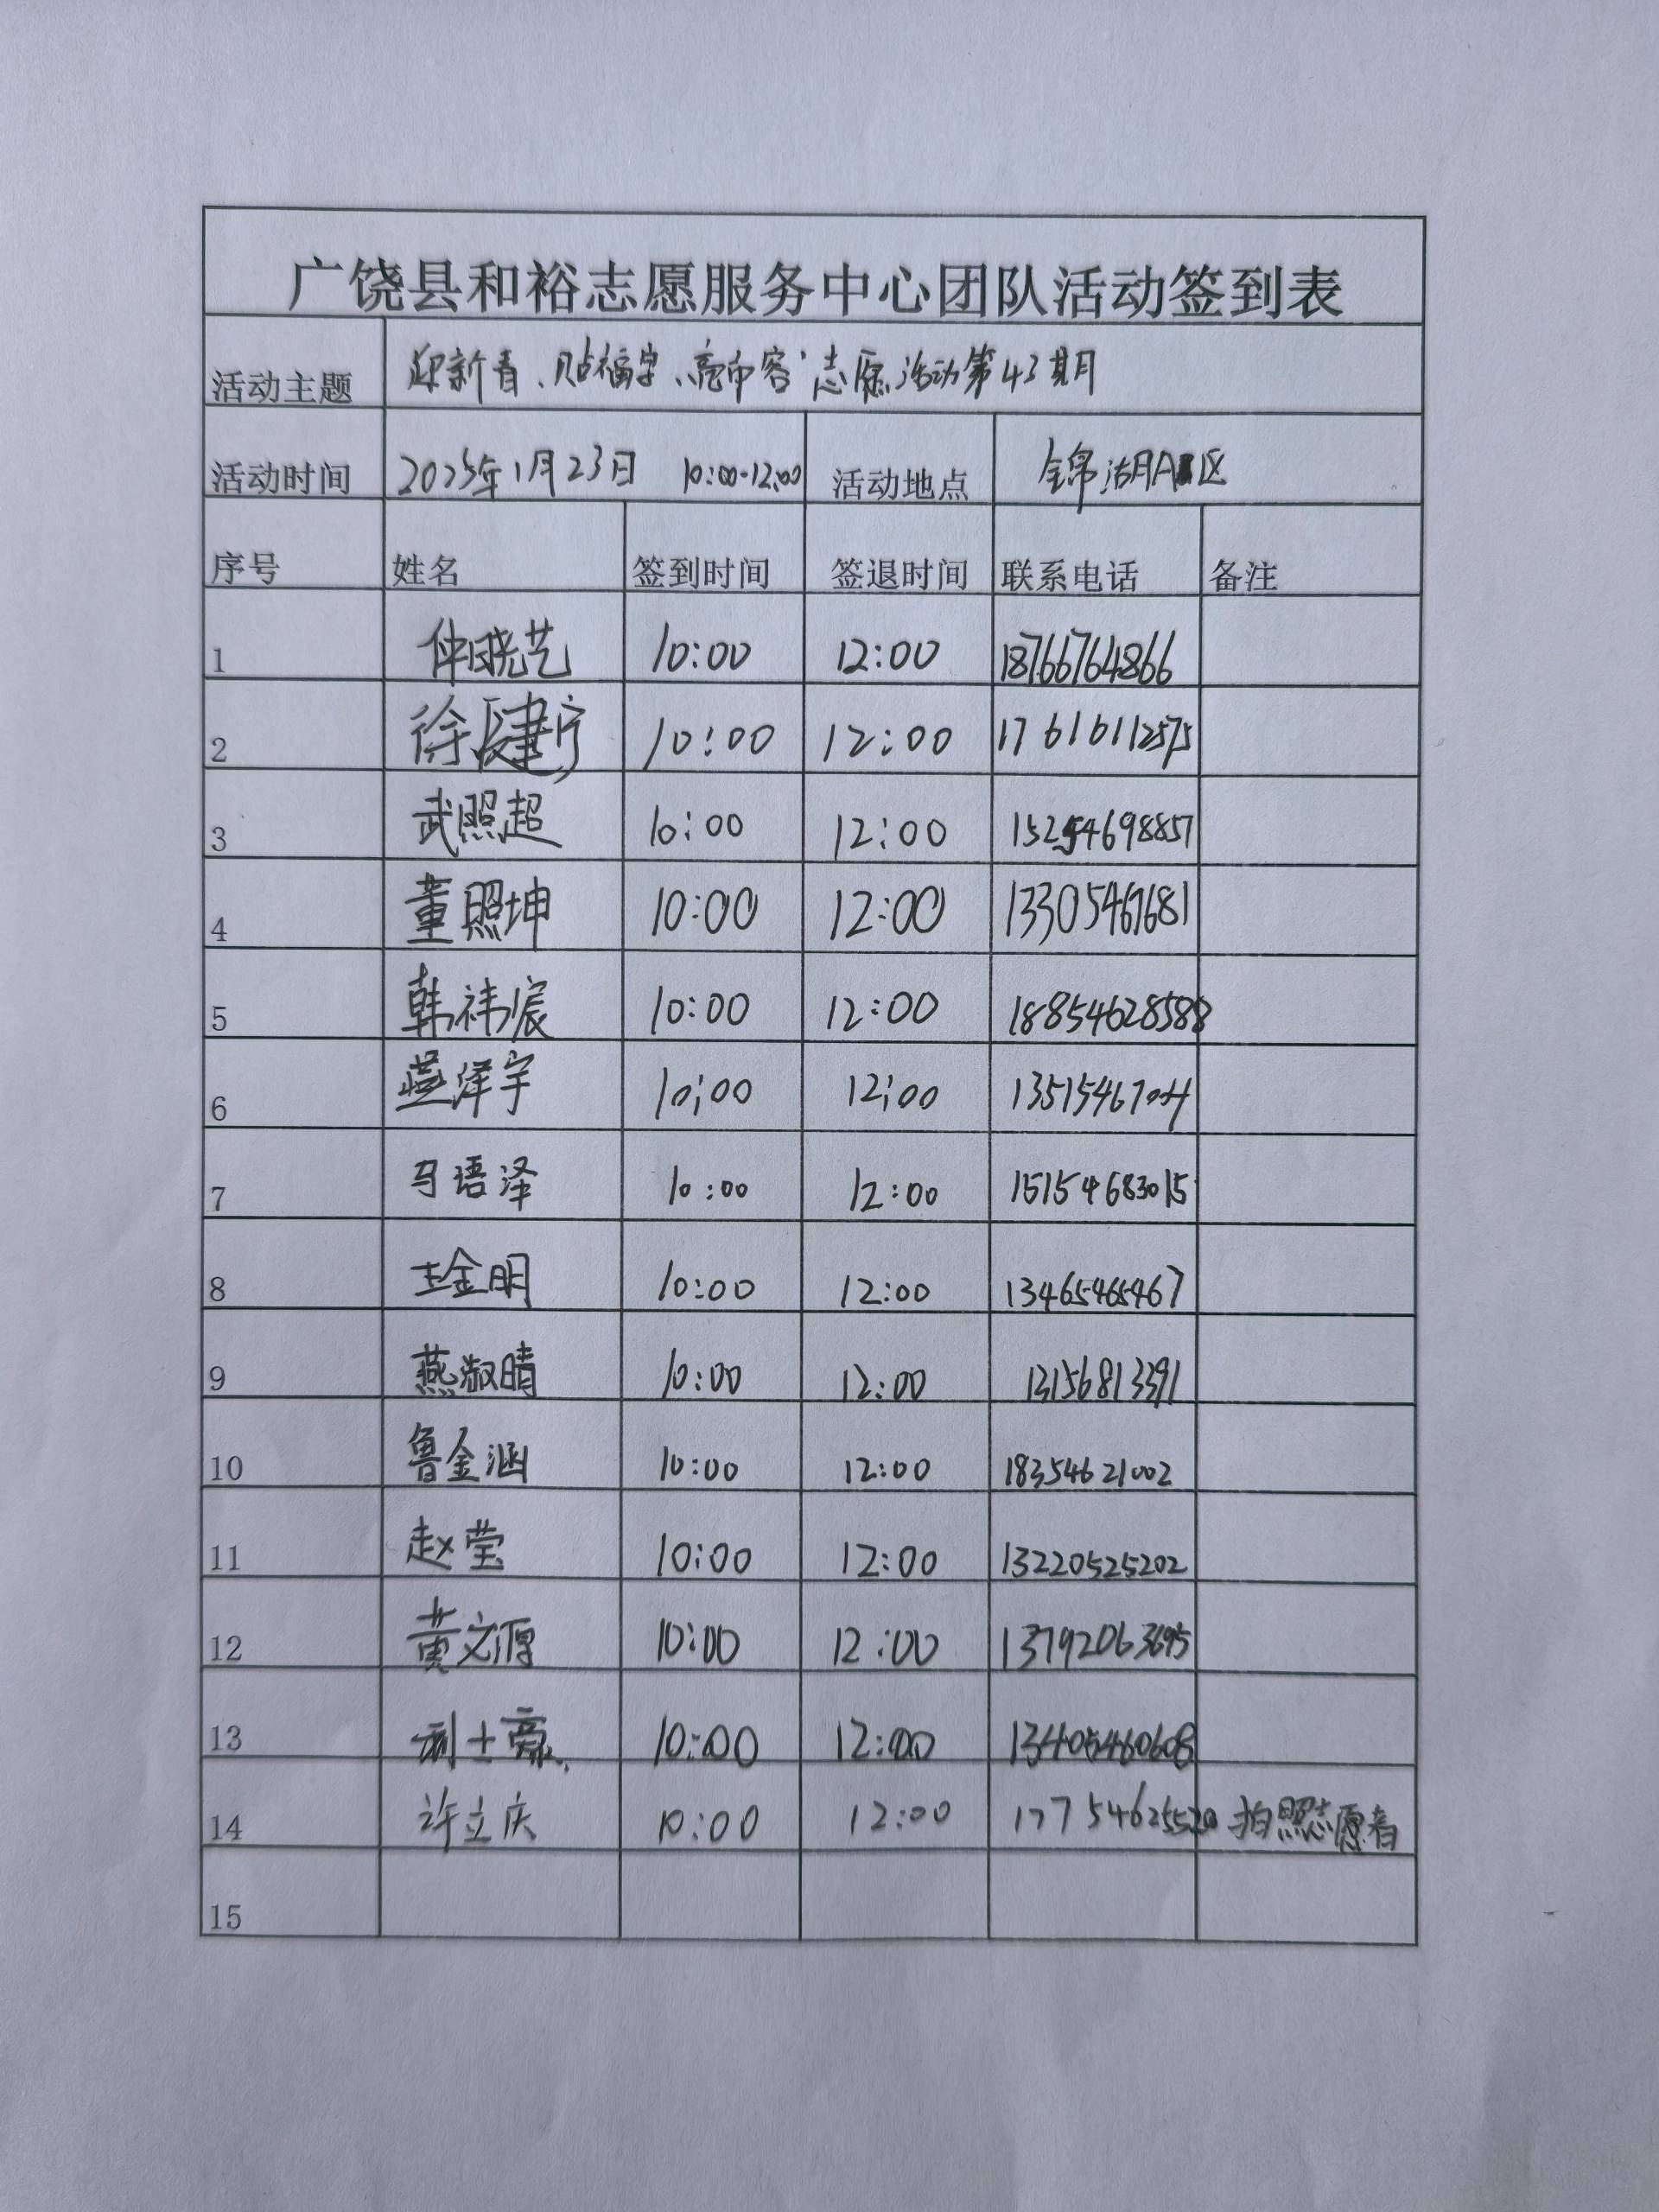 广饶县和裕志愿服务中心团队活动签到表
活动主题 迎新春、贴福字、亮市容"志愿活动第43期
活动时间 2025年1月23日 10:00-12:00 活动地点 锦湖A区
序号 姓名 签到时间 签退时间 联系电话 备注
1 仲晓艺 10:00 12:00 18766764866
2 徐健宁 10:00 12:00 17616112575
3 武照超 10:00 12:00 15254698857
4 董照坤 10:00 12:00 13305467681
5 韩祎宸 10:00 12:00 18854628588
6 燕泽宇 10:00 12:00
7 马语泽 10:00 12:00 15154683015
8 王金明 10:00 12:00 13465465467
9 燕淑晴 10:00 12:00 13156813391
10 鲁金涵 10:00 12:00 18354621002
11 赵莹 10:00 12:00 13220525202
12 黄文源 10:00 12:00 13792063695
13 士豪 10:00 12:00 13405460608
14 许立庆 10:00 12:00 17754625520 拍照志愿者
15